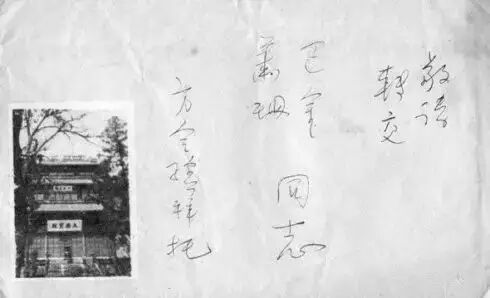 敬请
轉交
巴金
蕭珊
同志
方令孺拜托